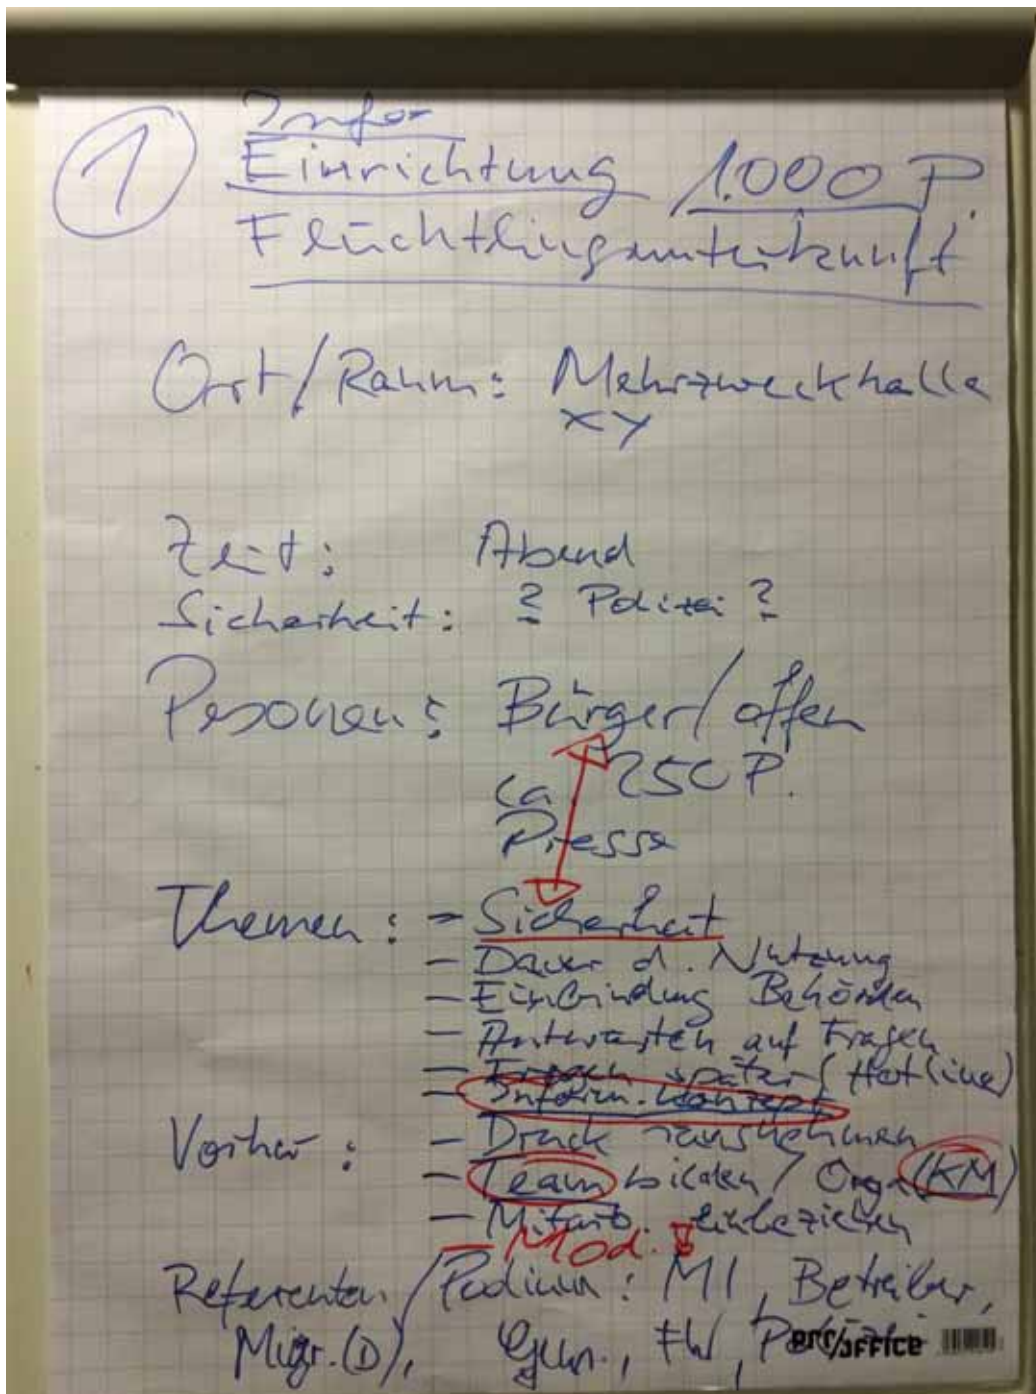 ① Infor
Einrichtung 1.000 P.
Flüchtlingsunterkunft
Ort/Raum: Mehrzweckhalle
XY
Zeit: Abend
Sicherheit: ? Polizei ?
Pesonen: Bürger/offen
ca. 250 P.
Presse
Themen: - Sicherheit
- Dauer d. Nutzung
- Einbindung Behörden
- Antworten auf Fragen
- Fragen später (Hotline)
- Inform.konzept
Vorher: - Druck rausnehmen
- Team bilden / Orga (KM)
- Mitarb. einbeziehen
- Mod.
Referenten/Podium: MI, Betreiber,
Migr.(D), FW,
office